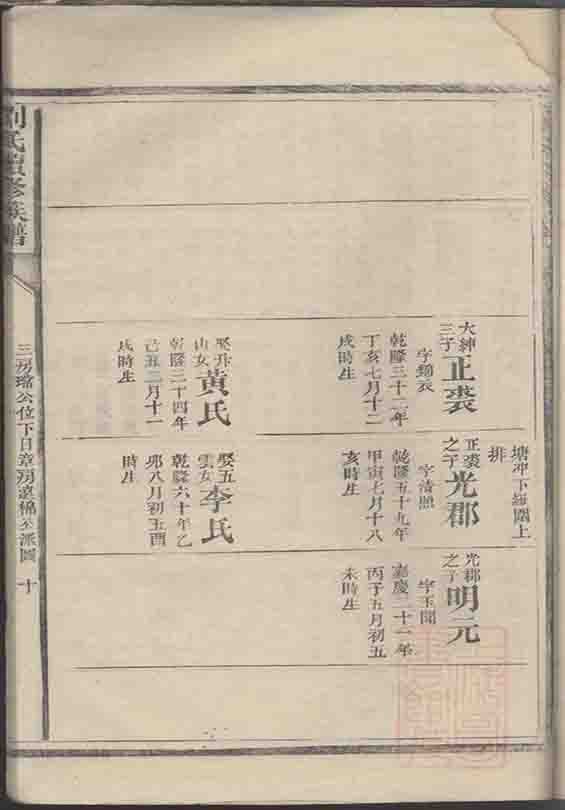 劉氏續修族譜
三房瑺公位下日章房遠楊公派圖 十
塘冲下羅圍上
排
大紳
三子
正裘
字錦衣
乾隆三十二年
丁亥七月十二
戌時生
娶升
山女
黃氏
乾隆三十四年
己丑二月十一
戌時生
正裘
之子
光郡
字清照
乾隆五十九年
甲寅七月十八
亥時生
娶五
雲女
李氏
乾隆六十年乙
卯八月初五酉
時生
光郡
之子
明元
字玉聞
嘉慶二十一年
丙子五月初五
未時生